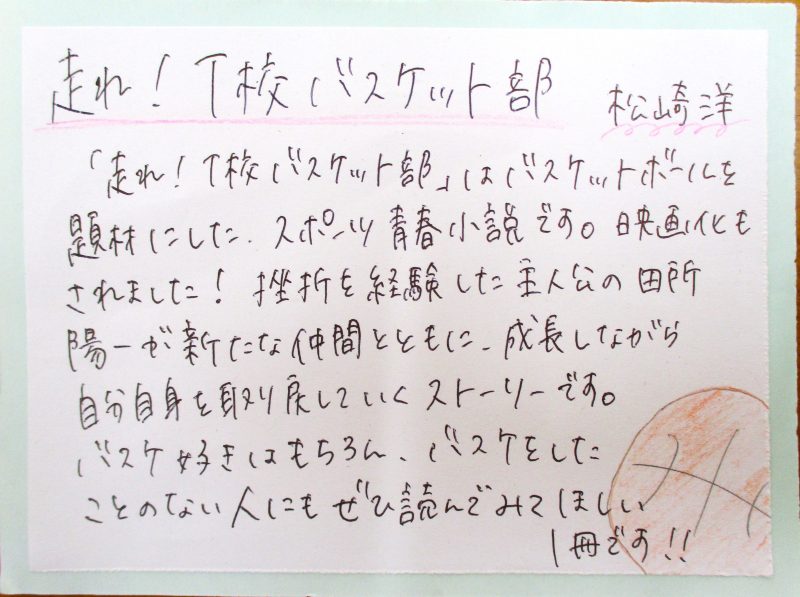 走れ！T校バスケット部 松崎洋
「走れ！T校バスケット部」はバスケットボールを
題材にした、スポーツ青春小説です。映画化も
されました！挫折を経験した主人公の田所
陽一が新たな仲間とともに、成長しながら
自分自身を取り戻していくストーリーです。
バスケ好きはもちろん、バスケをした
ことのない人にもぜひ読んでみてほしい
1冊です!!